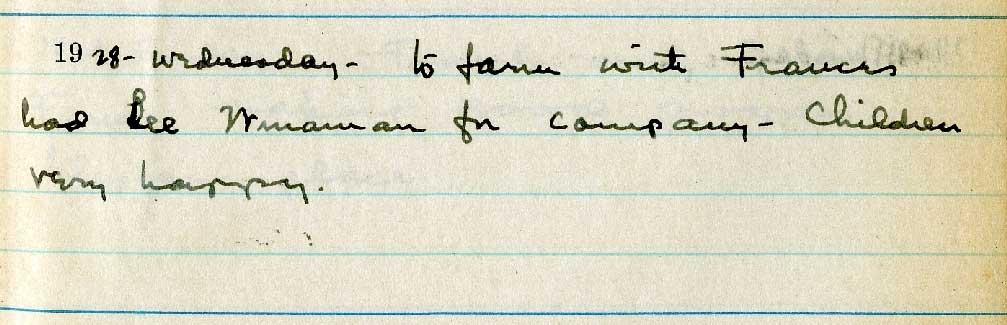 1928- Wednesday- to farm with Frances
had Lee for company- Children
very happy.